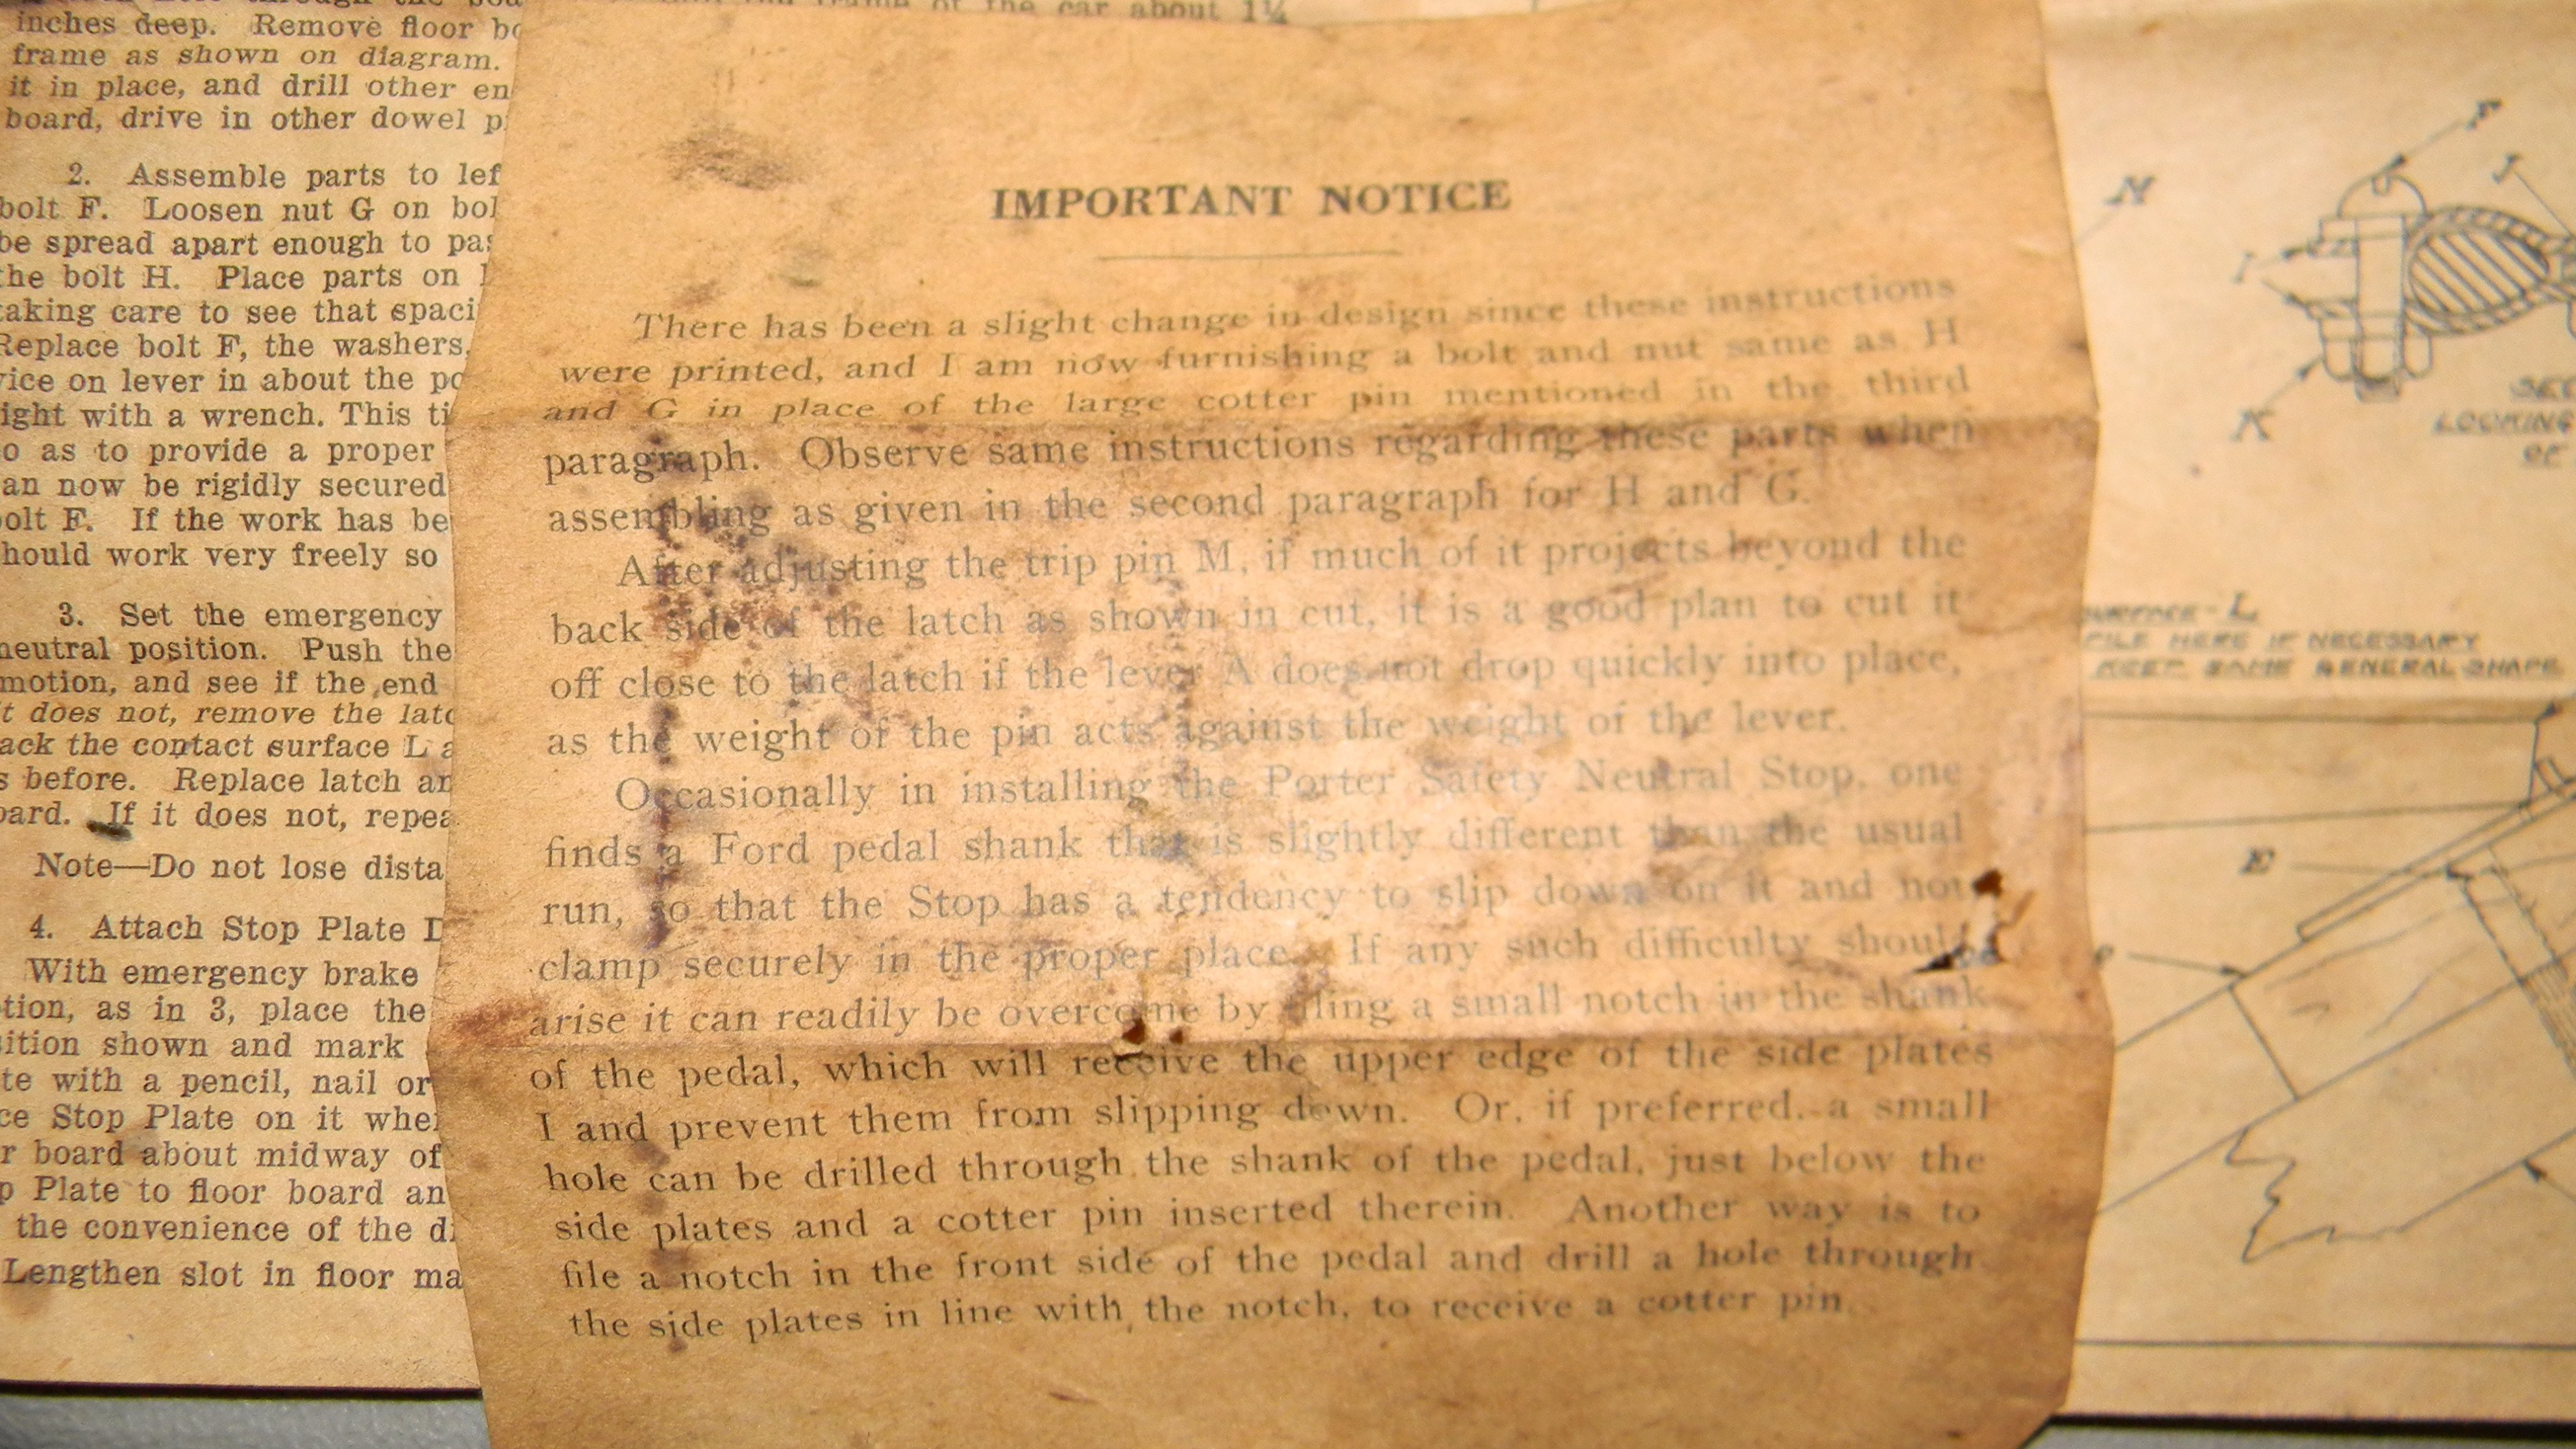 inches deep. Remove floor
frame as shown on diagram.
it in place, and drill other
board, drive in other dowel
2. Assemble parts to
bolt F. Loosen nut G on
be spread apart enough to
the bolt H. Place parts on
taking care to see that
Replace bolt F, the washers,
on lever in about the
with a wrench. This
as to provide a proper
now be rigidly secured
bolt F. If the work has
should work very freely so
3. Set the emergency
neutral position. Push the
motion, and see if the end
it does not, remove the
the contact surface L
before. Replace latch
If it does not,
Note—Do not lose
4. Attach Stop Plate D
With emergency brake
as in 3, place the
shown and mark
with a pencil, nail or
Stop Plate on it
board about midway of
Plate to floor board
the convenience of the
Lengthen slot in floor
of the car about 1¼
IMPORTANT NOTICE
There has been a slight change in design since these instructions
were printed, and I am now furnishing a bolt and nut same as H
and G in place of the large cotter pin mentioned in the third
paragraph. Observe same instructions regarding these parts when
assembling as given in the second paragraph for H and G.
After adjusting the trip pin M, if much of it projects beyond the
back side of the latch as shown in cut, it is a good plan to cut it
off close to the latch if the lever A does not drop quickly into place,
as the weight of the pin acts against the weight of the lever.
Occasionally in installing the Porter Safety Neutral Stop, one
finds a Ford pedal shank that is slightly different than the usual
run, so that the Stop has a tendency to slip down on it and not
clamp securely in the proper place. If any such difficulty should
arise it can readily be overcome by filing a small notch in the shank
of the pedal, which will receive the upper edge of the side plates
I and prevent them from slipping down. Or, if preferred, a small
hole can be drilled through the shank of the pedal, just below the
side plates and a cotter pin inserted therein. Another way is to
file a notch in the front side of the pedal and drill a hole through
the side plates in line with the notch, to receive a cotter pin.
F
M
J
I
K
LOOKING
SURFACE-L
FILE HERE IF NECESSARY
KEEP SAME GENERAL SHAPE
E